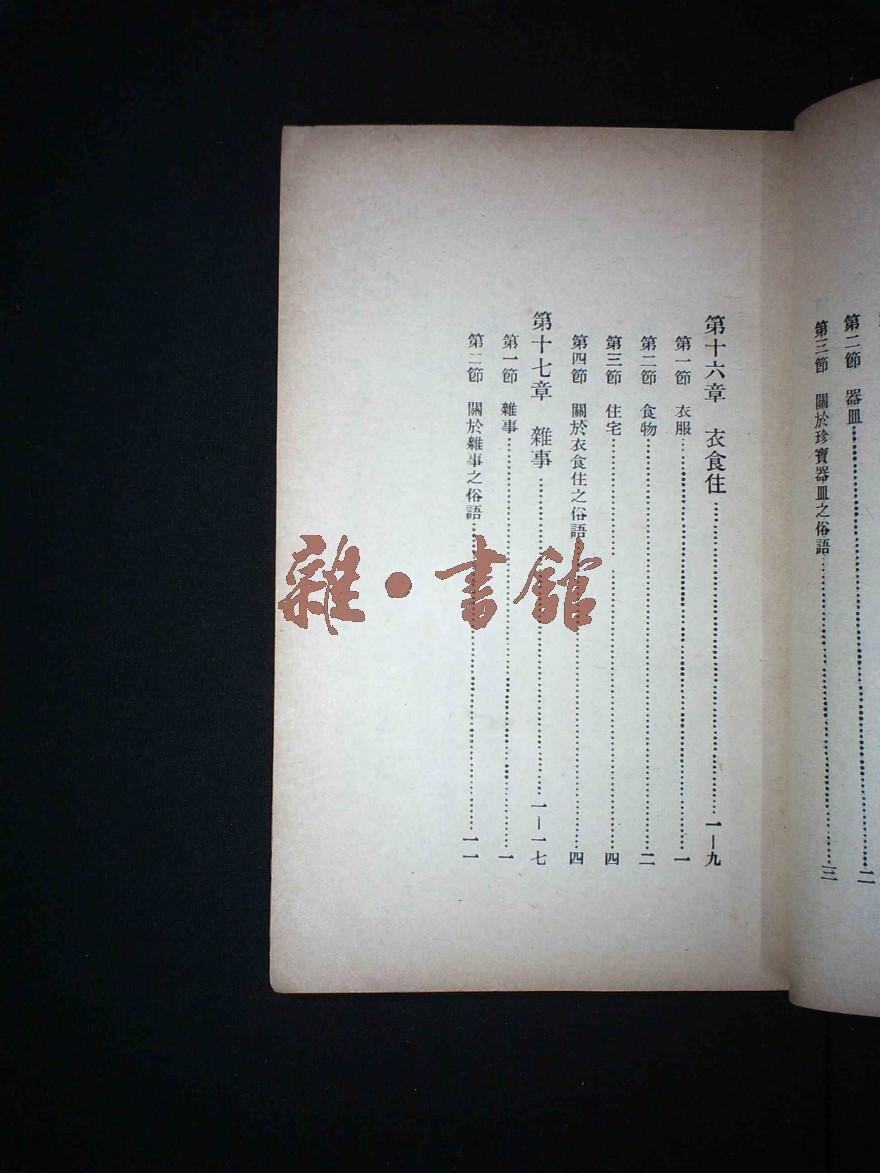 第二節　器皿……二
第三節　關於珍寶器皿之俗語……三
第十六章　衣食住……一—九
第一節　衣服……一
第二節　食物……二
第三節　住宅……四
第四節　關於衣食住之俗語……四
第十七章　雜事……一—一七
第一節　雜事……一
第二節　關於雜事之俗語……一一
雜·書館